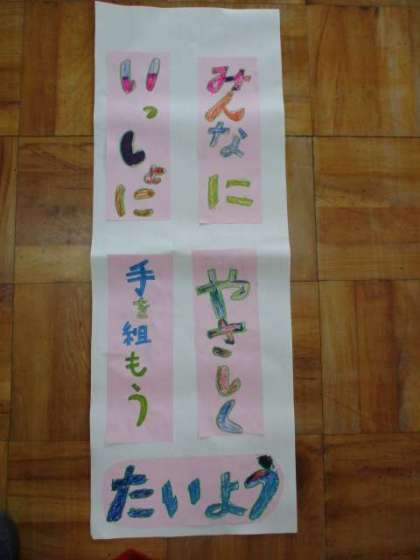 みんなに
やさしく
いっしょに
手を組もう
たいよう